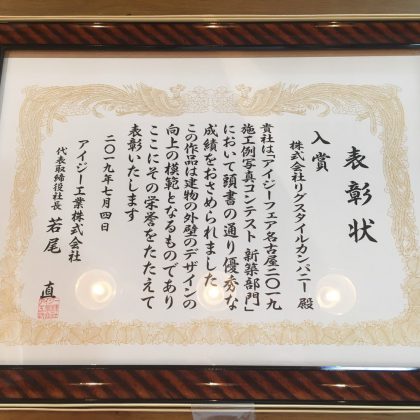 表彰状
入賞
株式会社リグスタイルカンパニー 殿
貴社は「アイジーフェア名古屋二〇一九
施工例写真コンテスト 新築部門」
において頭書の通り優秀な
成績をおさめられました
この作品は建物の外壁のデザインの
向上の模範となるものであり
ここにその栄誉をたたえて
表彰いたします
二〇一九年七月四日
アイジー工業株式会社
代表取締役社長 若尾 直